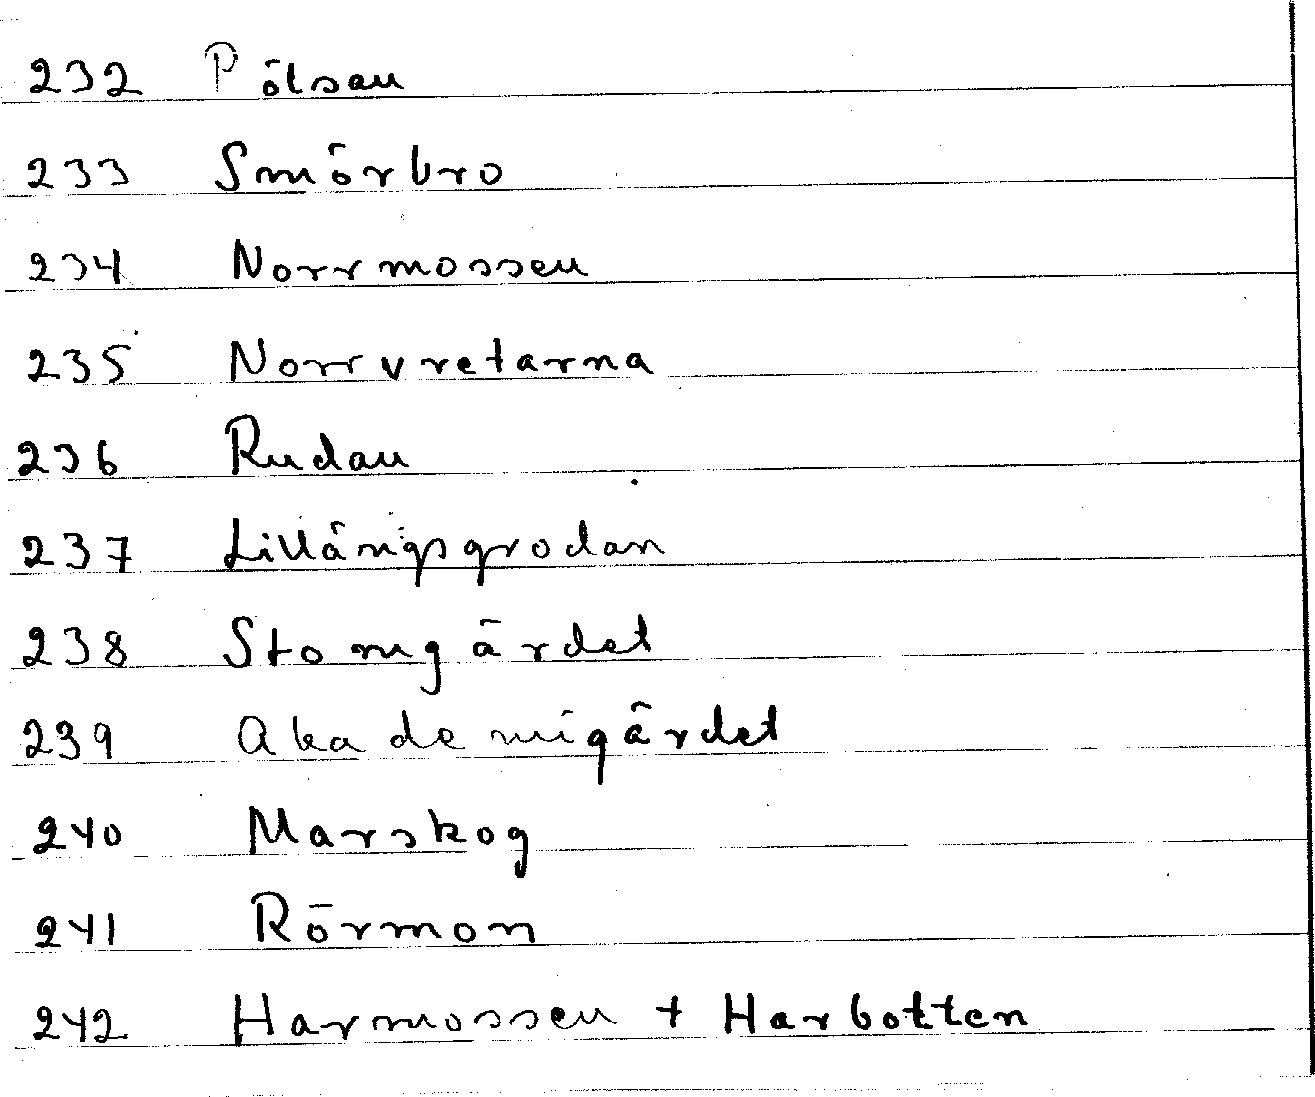 232 Pölsan
233 Smörbro
234 Norrmossen
235 Norrvretarna
236 Rudan
237 Lillängsgrodan
238 Stomgärdet
239 Akademigärdet
240 Marskog
241 Rörmon
242 Harmossen + Harbotten